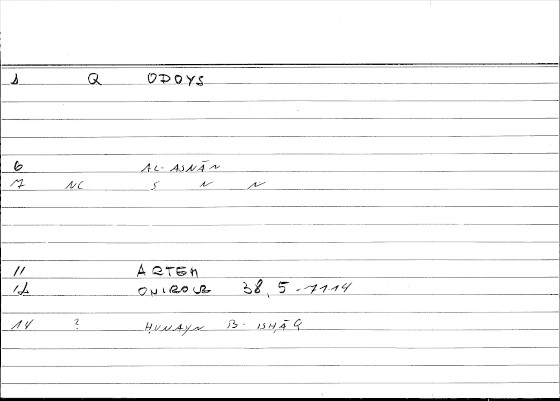 1 Q ODOYS
6 AL-ASNĀN
7 NC S N N
11 ARTEM
12 ONIROCR 38, 5-7114
14 ? ḤUNAYN B. ISḤĀQ